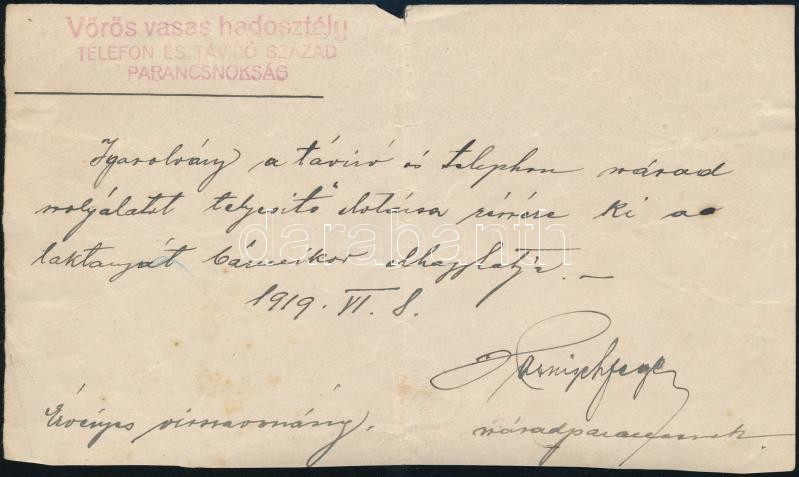 Vörös vasas hadosztály
TELEFON ÉS TÁVIRÓ SZÁZAD
PARANCSNOKSÁG
Igazolvány a táviró és telephon század
szolgálatot teljesitő részére ki a
laktanyát bármikor elhagyhatja. —
1919. VI. 8.
Érvényes visszavonásig.
századparancsnok.
darabanth